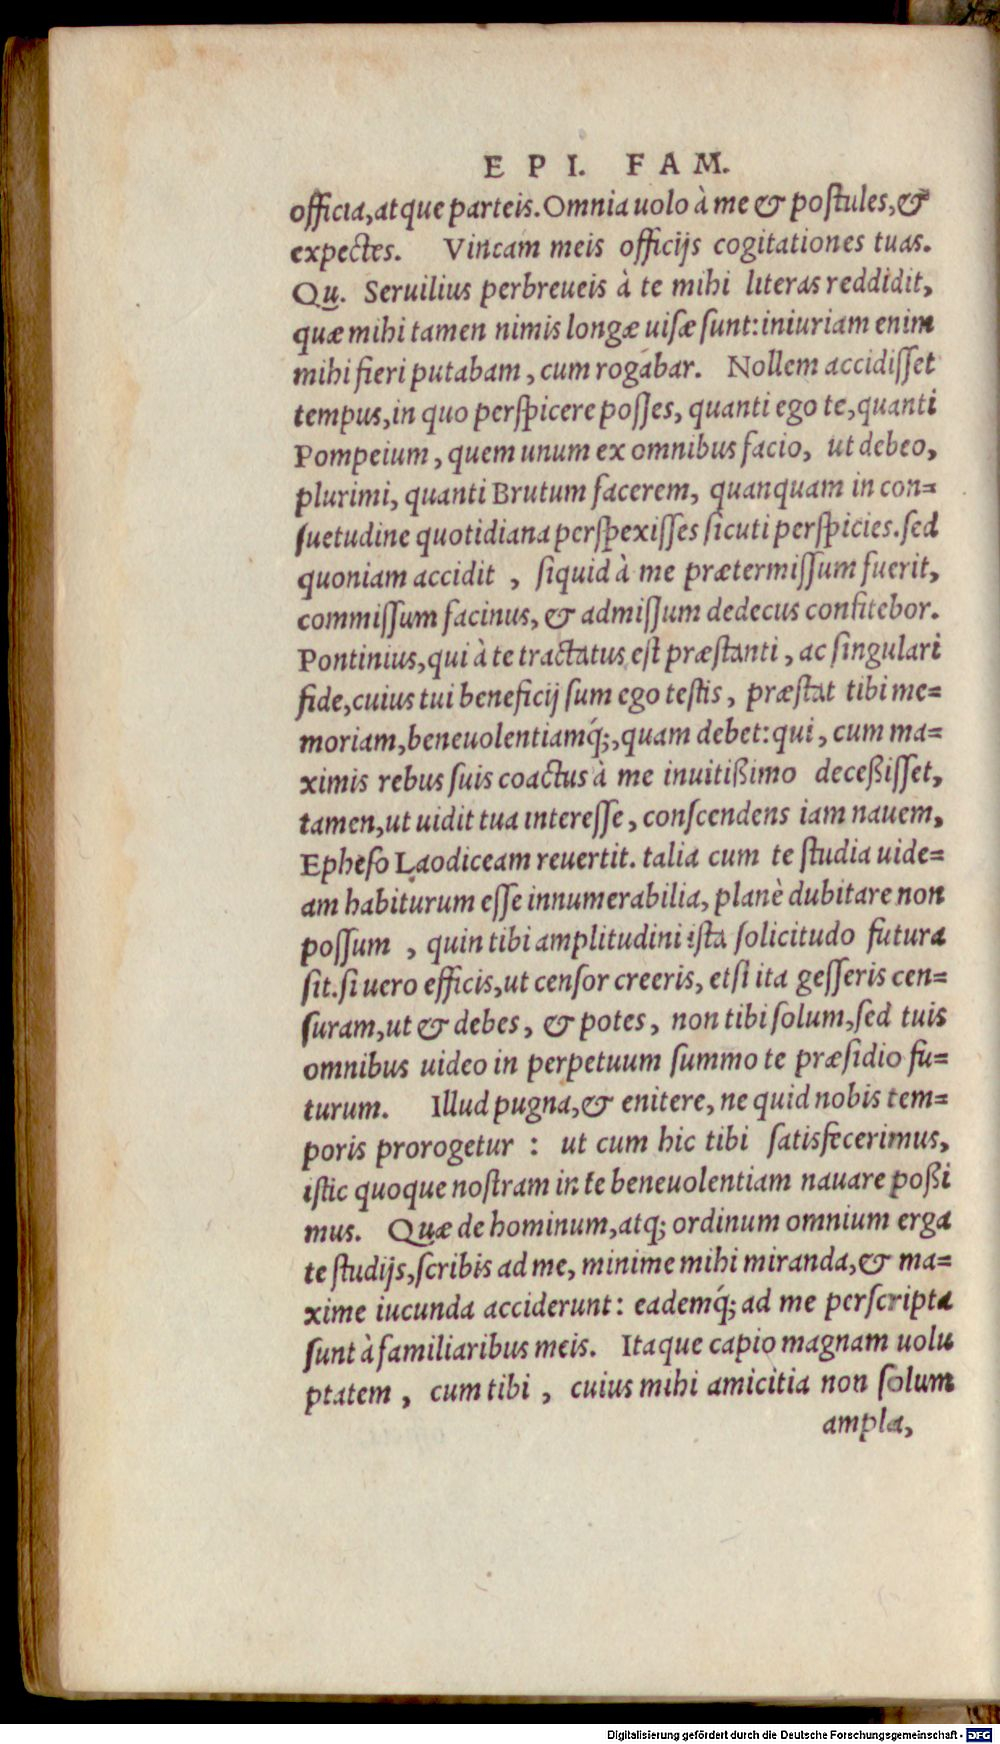 EPI. FAM.
officia,atque parteis.Omnia uolo à me & poſtules,&
expectes. Vincam meis officijs cogitationes tuas.
Qu. Seruilius perbreueis à te mihi literas reddidit,
quæ mihi tamen nimis longæ uiſæ ſunt:iniuriam enim
mihi fieri putabam, cum rogabar. Nollem accidiſſet
tempus,in quo perſpicere poſſes, quanti ego te,quanti
Pompeium, quem unum ex omnibus facio, ut debeo,
plurimi, quanti Brutum facerem, quanquam in con=
ſuetudine quotidiana perſpexiſſes ſicuti perſpicies.ſed
quoniam accidit , ſiquid à me prætermiſſum fuerit,
commiſſum facinus, & admiſſum dedecus confitebor.
Pontinius,qui à te tractatus eſt præſtanti, ac ſingulari
fide,cuius tui beneficij ſum ego teſtis, præſtat tibi me=
moriam,beneuolentiamq́;,quam debet:qui, cum ma=
ximis rebus ſuis coactus à me inuitißimo deceßiſſet,
tamen,ut uidit tua intereſſe, conſcendens iam nauem,
Epheſo Laodiceam reuertit. talia cum te ſtudia uide=
am habiturum eſſe innumerabilia, planè dubitare non
poſſum , quin tibi amplitudini iſta ſolicitudo futura
ſit.ſi uero efficis,ut cenſor creeris, etſi ita geſſeris cen=
ſuram,ut & debes, & potes, non tibi ſolum,ſed tuis
omnibus uideo in perpetuum ſummo te præſidio fu=
turum. Illud pugna,& enitere, ne quid nobis tem=
poris prorogetur : ut cum hic tibi ſatisfecerimus,
iſtic quoque noſtram in te beneuolentiam nauare poßi
mus. Quæ de hominum,atq; ordinum omnium erga
te ſtudijs,ſcribis ad me, minime mihi miranda,& ma=
xime iucunda acciderunt: eademq́; ad me perſcripta
ſunt à familiaribus meis. Itaque capio magnam uolu
ptatem , cum tibi , cuius mihi amicitia non ſolum
ampla,
Digitalisierung gefördert durch die Deutsche Forschungsgemeinschaft - DFG